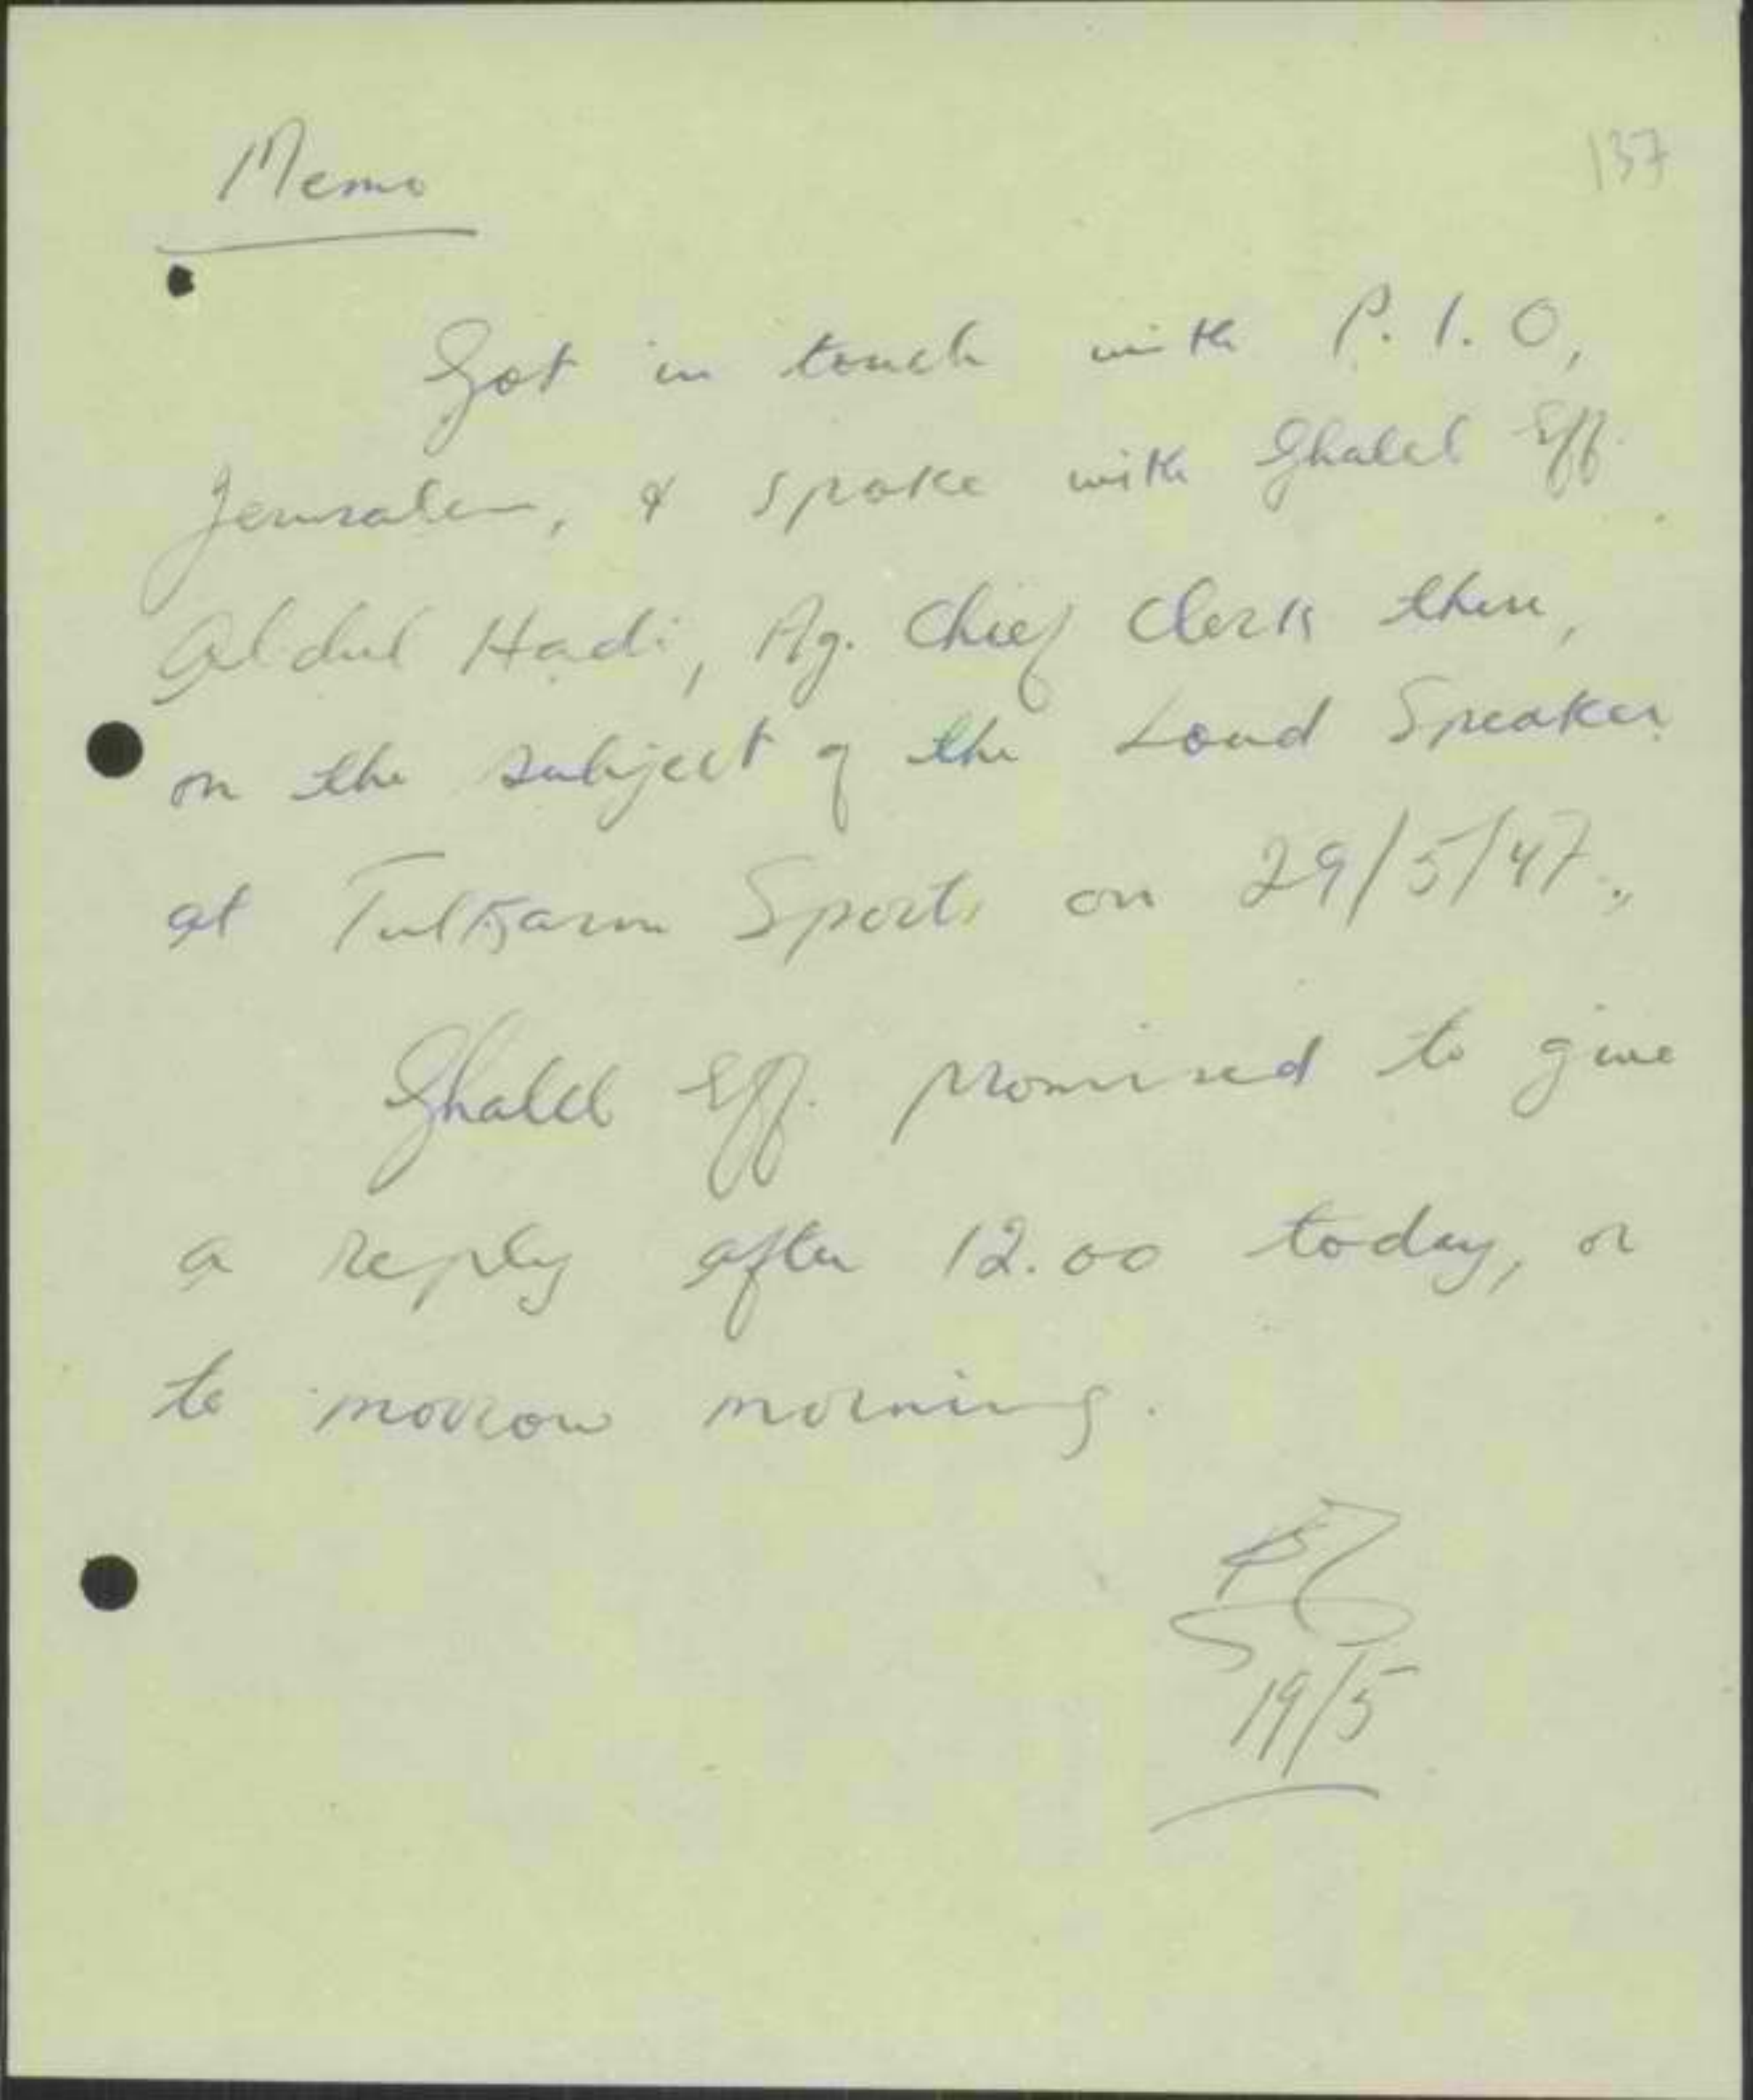 137
Memo
Got in touch with P. I. O,
Jerusalem, & spoke with Ghaleb Eff.
Abdul Hadi, Ag. Chief Clerk there,
on the subject of the Loud Speaker
at Tulkarm Sports on 29/5/47.,
Ghaleb Eff. promised to give
a reply after 12.00 today, or
to morrow morning.
19/5